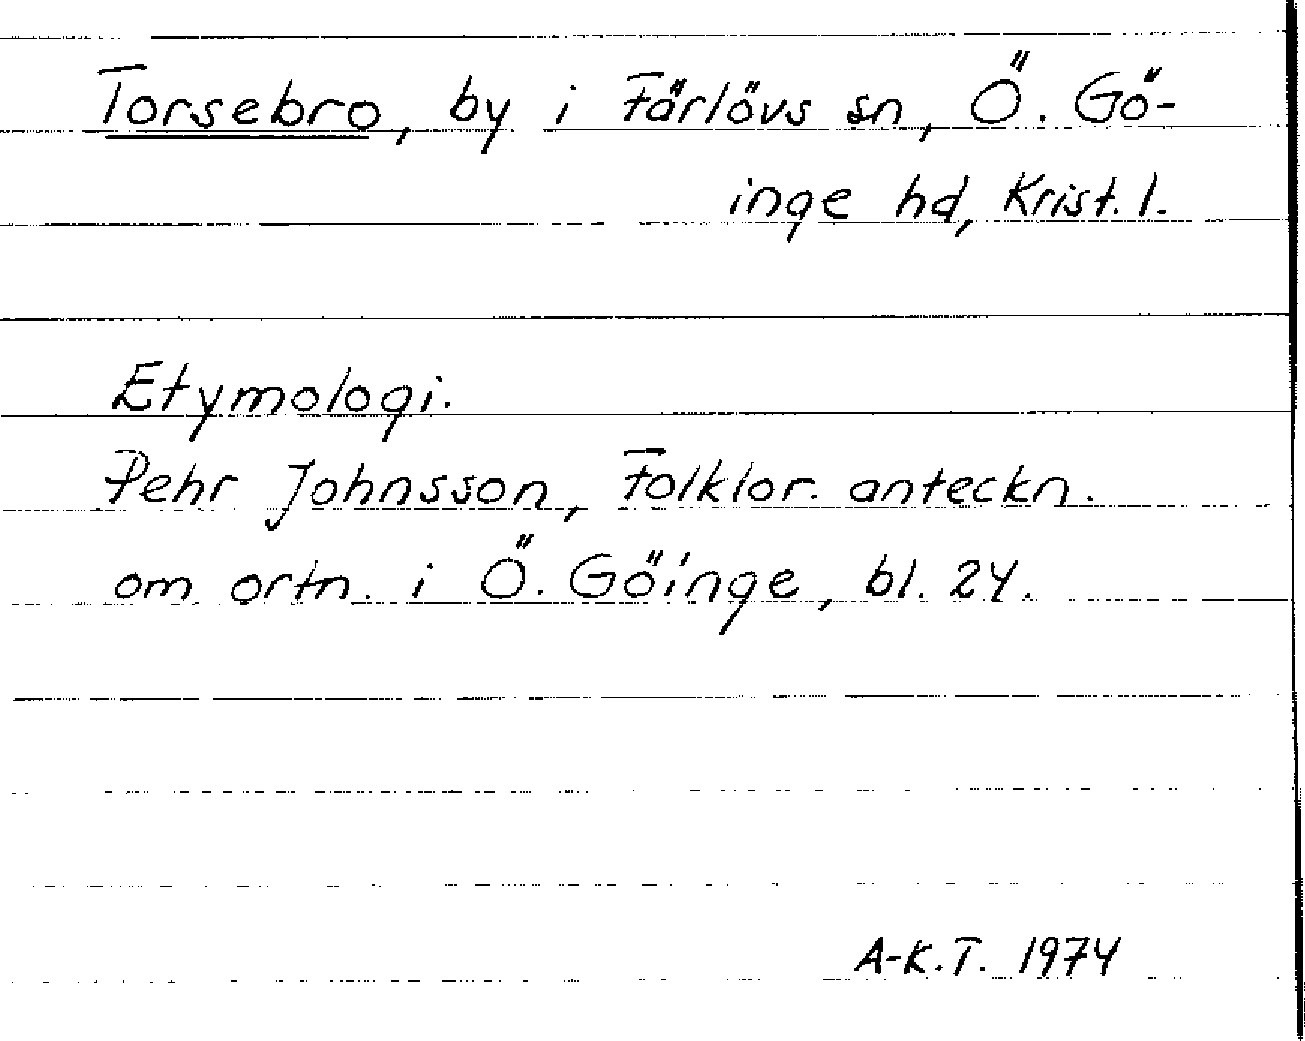 Torsebro, by i Färlövs sn, Ö. Gö-
inge hd, Krist. l.
Etymologi.
Pehr Johnsson, Folklor. anteckn.
om ortn. i Ö. Göinge, bl. 24.
A-K.T. 1974